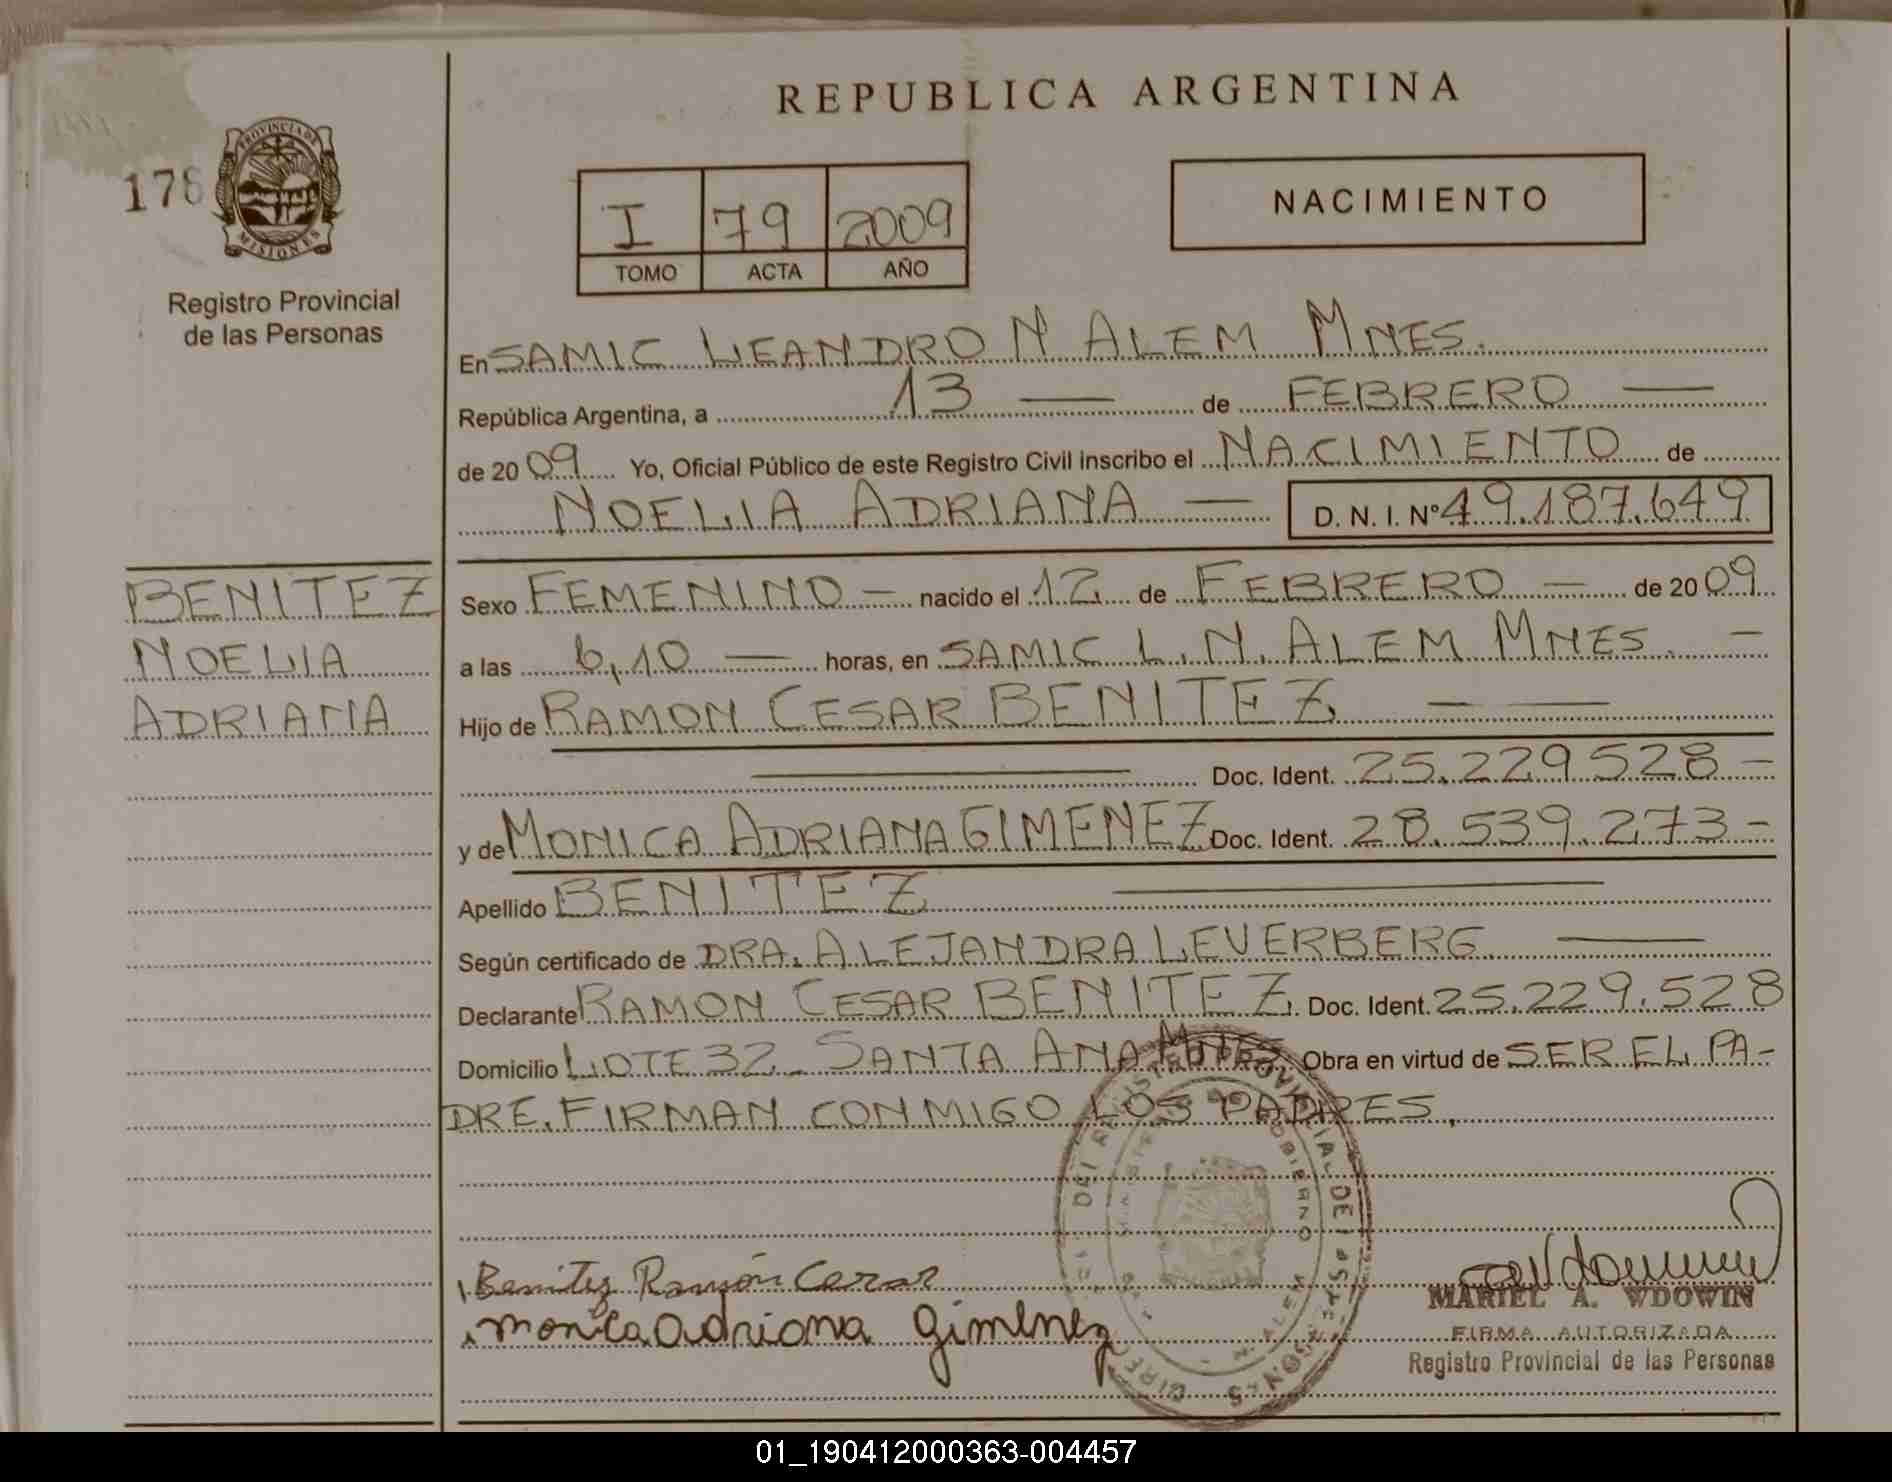 REPUBLICA ARGENTINA
178
PROVINCIA DE
MISIONES
Registro Provincial
de las Personas
I 79 2009
TOMO ACTA AÑO
NACIMIENTO
En SAMIC LEANDRO N ALEM MNES.
República Argentina, a 13 — de FEBRERO —
de 20 09 Yo, Oficial Público de este Registro Civil inscribo el NACIMIENTO de
NOELIA ADRIANA — D. N. I. Nº 49.187.649
BENITEZ
NOELIA
ADRIANA
Sexo FEMENINO — nacido el 12 de FEBRERO — de 20 09
a las 6,10 — horas, en SAMIC L. N. ALEM MNES. —
Hijo de RAMON CESAR BENITEZ — —
Doc. Ident. 25.229528 —
y de MONICA ADRIANA GIMENEZ Doc. Ident. 28.539.273 —
Apellido BENITEZ
Según certificado de DRA. ALEJANDRA LEVERBERG. —
Declarante RAMON CESAR BENITEZ. Doc. Ident. 25.229.528
Domicilio LOTE 32 - SANTA ANA MNES Obra en virtud de SER EL PA-
DRE. FIRMAN CONMIGO LOS PADRES.
Benitez Ramón Cesar
monica adriana gimenez
MARIEL A. WDOWIN
FIRMA AUTORIZADA
Registro Provincial de las Personas
01_190412000363-004457